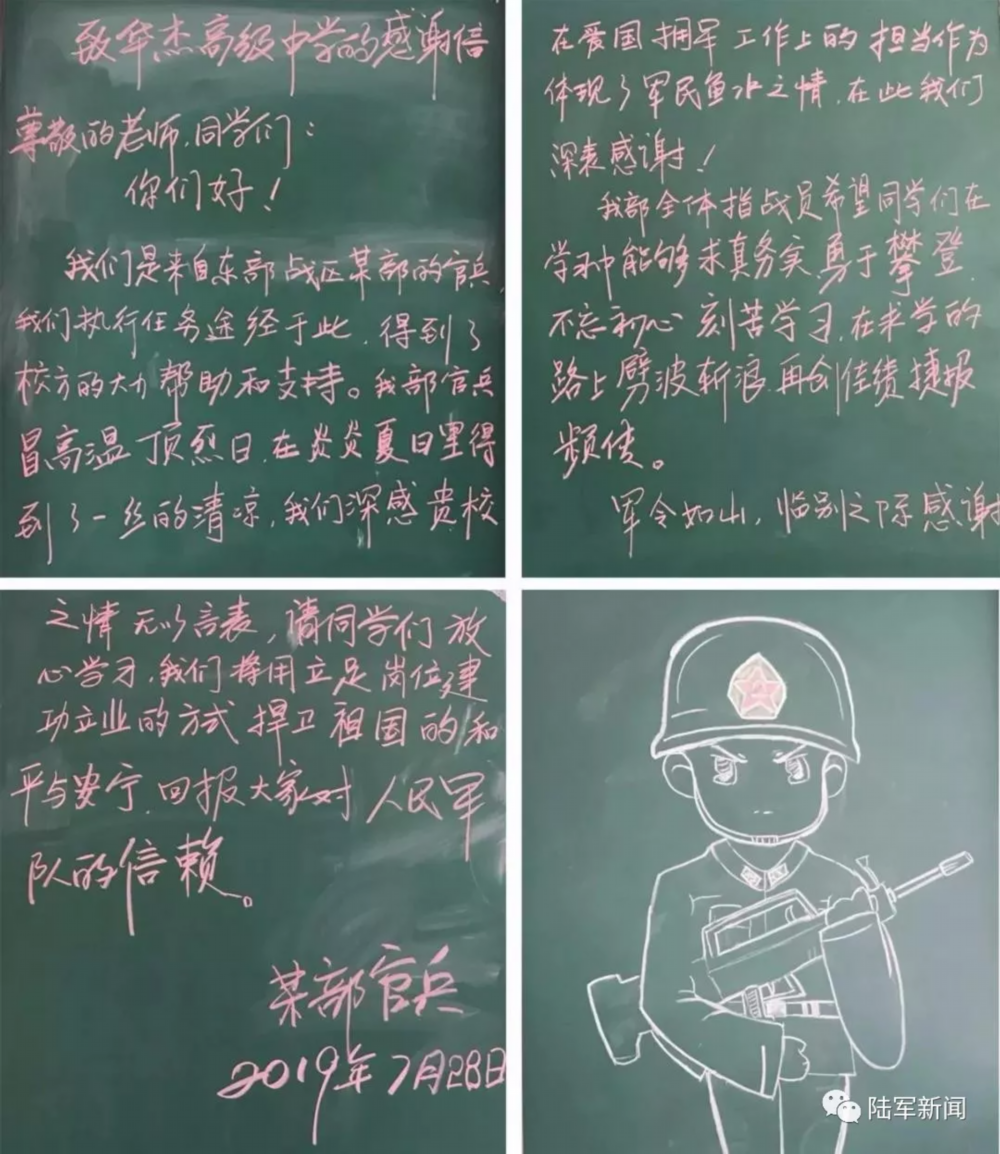 致华杰高级中学的感谢信
尊敬的老师、同学们：
你们好！
我们是来自东部战区某部的官兵，
我们执行任务途经于此，得到了
校方的大力帮助和支持。我部官兵
冒高温顶烈日，在炎炎夏日里得
到了一丝的清凉，我们深感贵校
在爱国拥军工作上的担当作为
体现了军民鱼水之情，在此我们
深表感谢！
我部全体指战员希望同学们在
学习中能够求真务实勇于攀登，
不忘初心刻苦学习，在求学的
路上劈波斩浪再创佳绩捷报
频传。
军令如山，临别之际感谢
之情无以言表，请同学们放
心学习，我们将用立足岗位建
功立业的方式捍卫祖国的和
平与安宁，回报大家对人民军
队的信赖。
某部官兵
2019年7月28日
陆军新闻